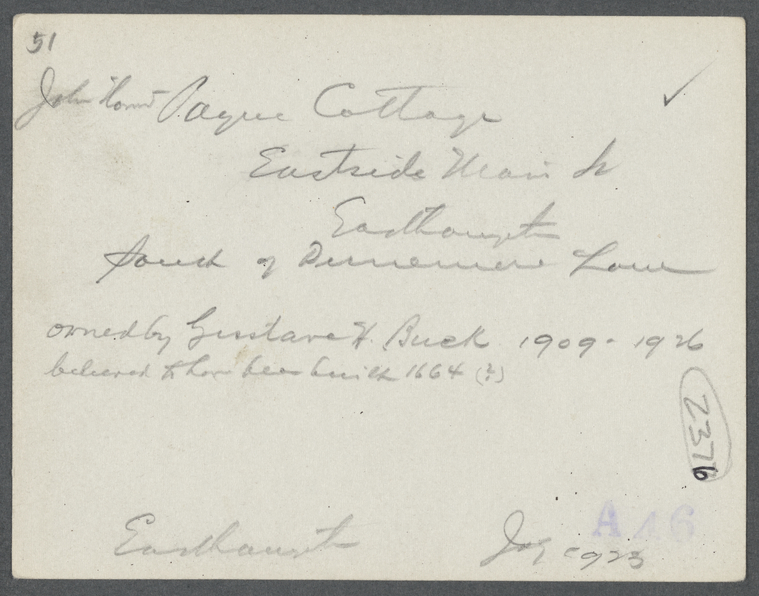 51
John Howard Payne Cottage
Eastside Main St
Easthampton
South of Dunemere Lane
owned by Gustave H. Buck 1909 - 1926
believed to have been built 1664 (?)
2376
A46
Easthampton 1923